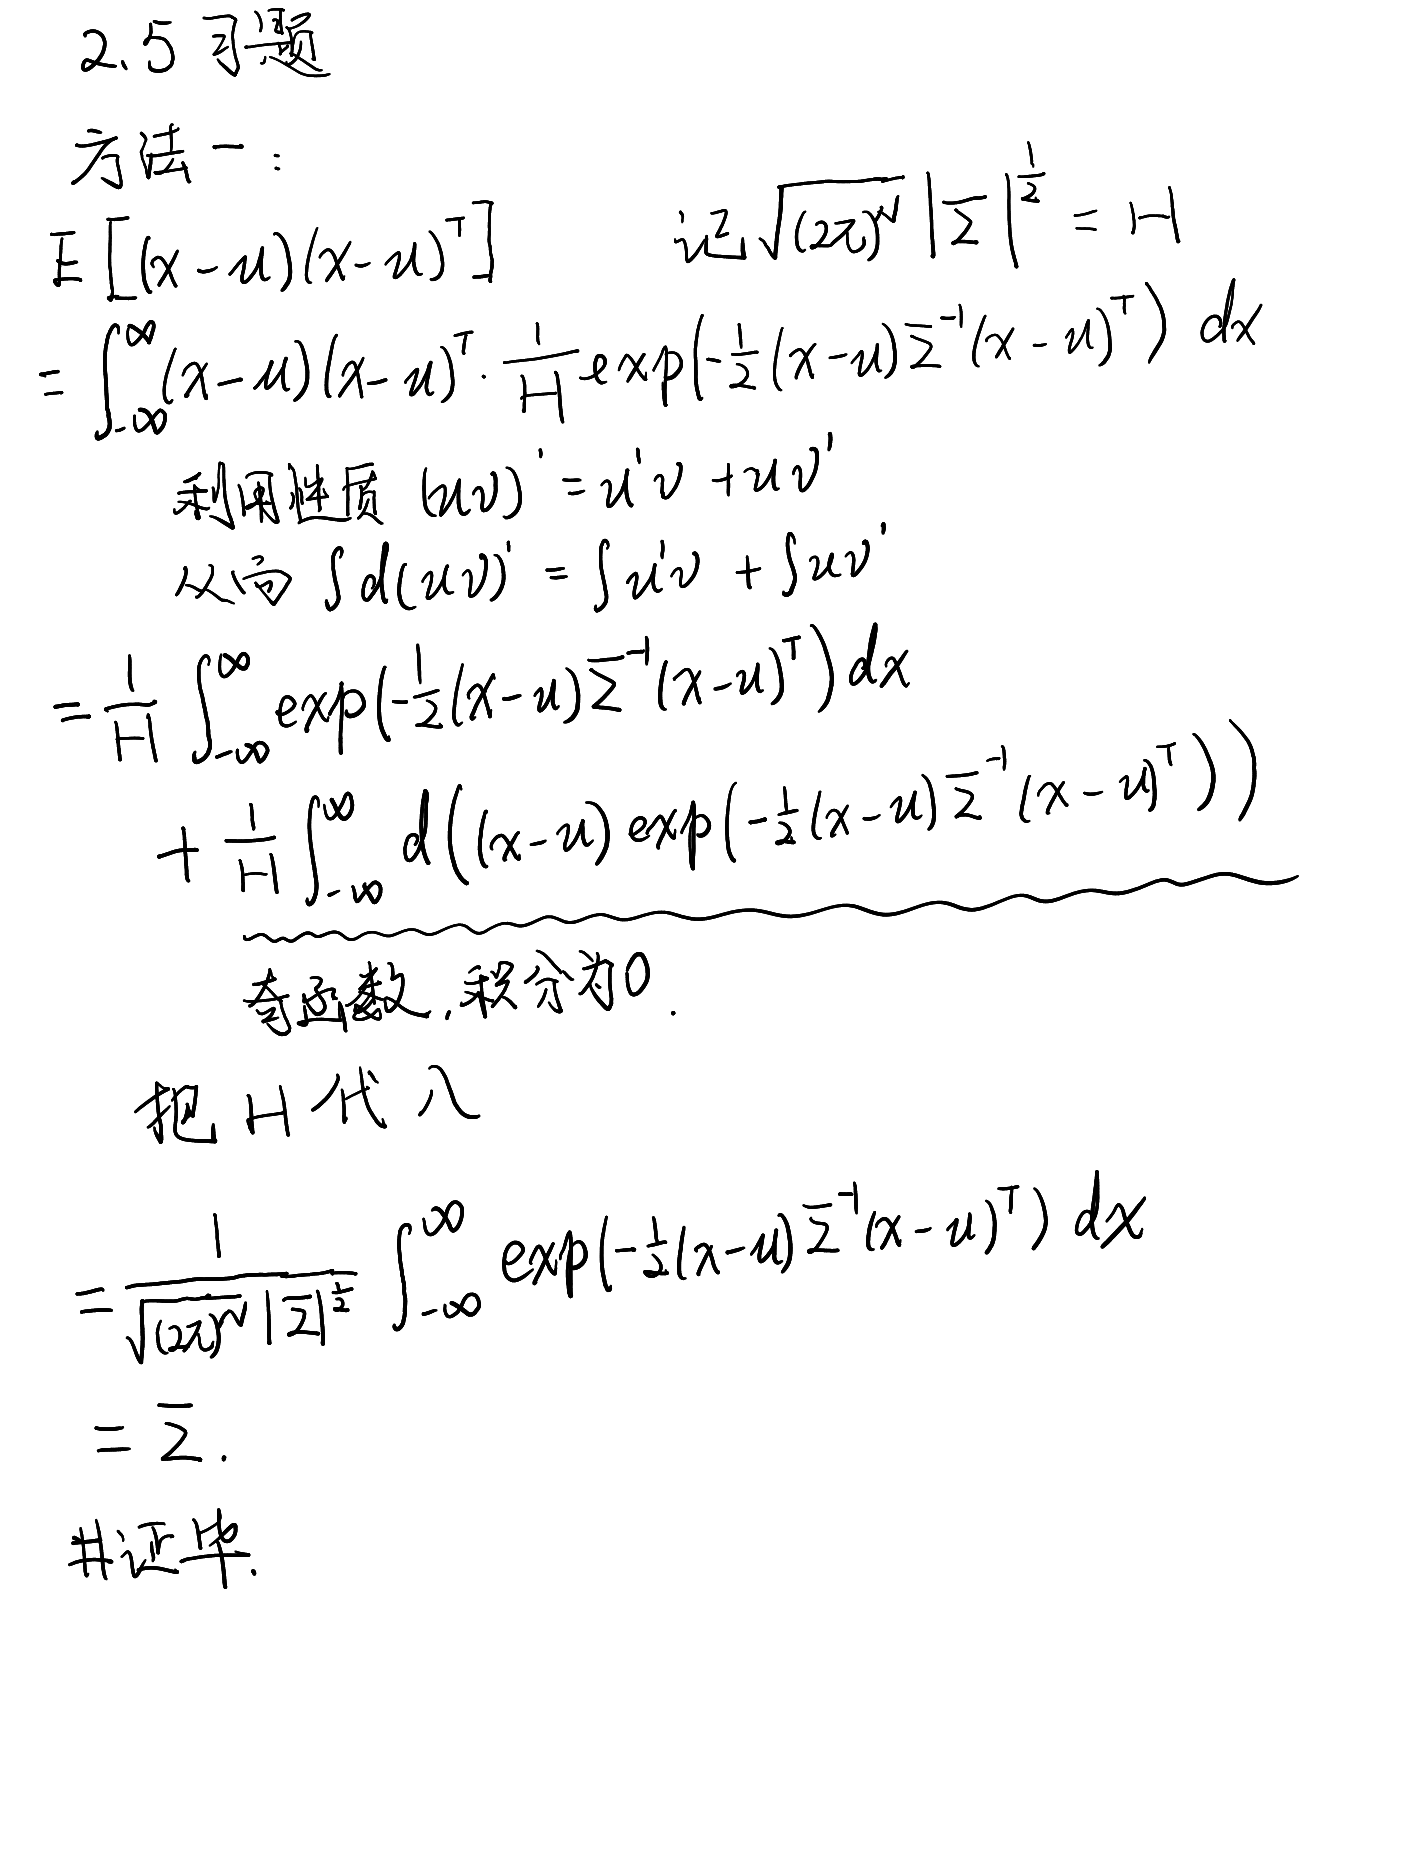 2.5 习题
方法一：
E[(x-u)(x-u)^T]    记 √((2π)^N) |Σ|^(1/2) = H
= ∫_{-∞}^{∞} (x-u)(x-u)^T · 1/H exp(-1/2 (x-u) Σ^{-1} (x-u)^T) dx
利用性质 (uv)' = u'v + uv'
从而 ∫d(uv)' = ∫u'v + ∫uv'
= 1/H ∫_{-∞}^{∞} exp(-1/2 (x-u) Σ^{-1} (x-u)^T) dx
+ 1/H ∫_{-∞}^{∞} d((x-u) exp(-1/2 (x-u) Σ^{-1} (x-u)^T))
奇函数,积分为0.
把 H 代入
= 1/(√((2π)^N) |Σ|^(1/2)) ∫_{-∞}^{∞} exp(-1/2 (x-u) Σ^{-1} (x-u)^T) dx
= Σ.
#证毕.